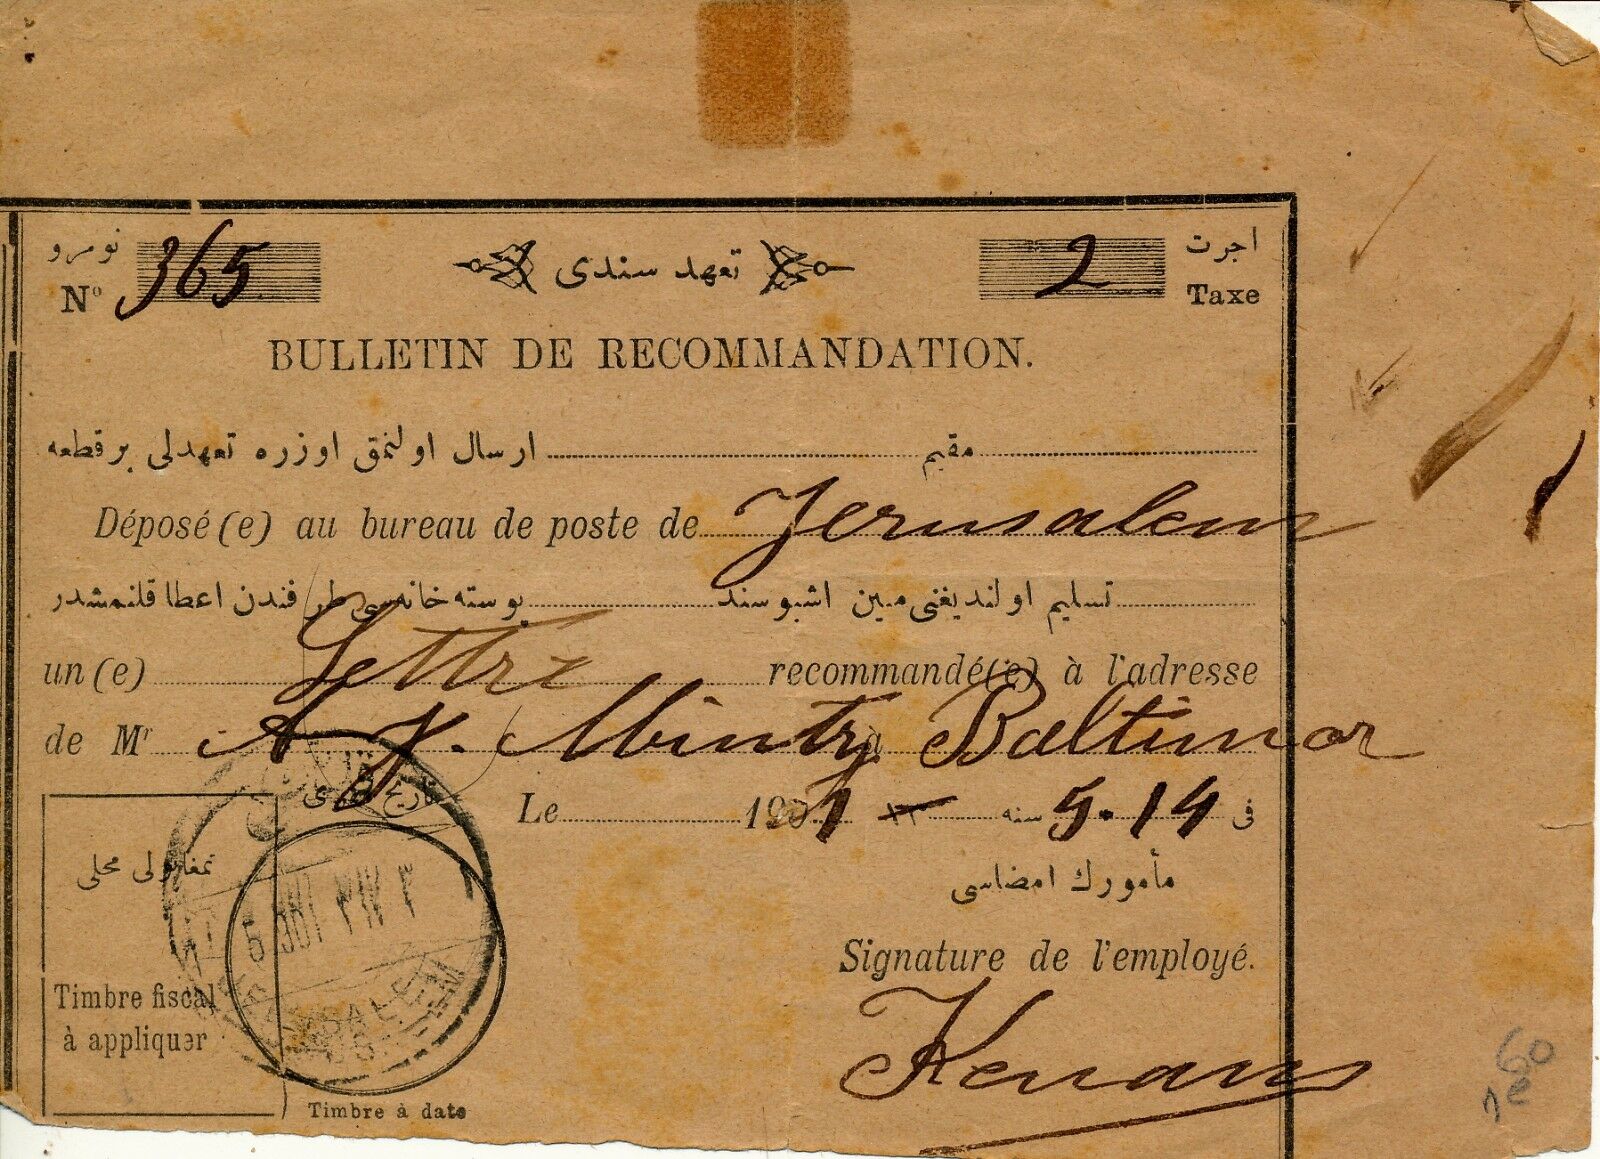 نومرو
Nº 365
تعهد سندی
2
اجرت
Taxe
BULLETIN DE RECOMMANDATION.
مقیم ارسال اولنمق اوزره تعهدلی بر قطعه
Déposé(e) au bureau de poste de Jerusalem
تسلیم اولندیغنی مبین اشبو سند پوسته خانه‌سی طرفندن اعطا قلنمشدر
un(e) Lettre recommandé(e) à l'adresse
de Mr A. J. Mintz à Baltimor
Le 1901 ١٣ سنه 5.14 فی
مأمورك امضاسی
Signature de l'employé.
Kenan
تمغا پولی محلی
Timbre fiscal
à appliquer
JERUSALEM
Timbre à date
60